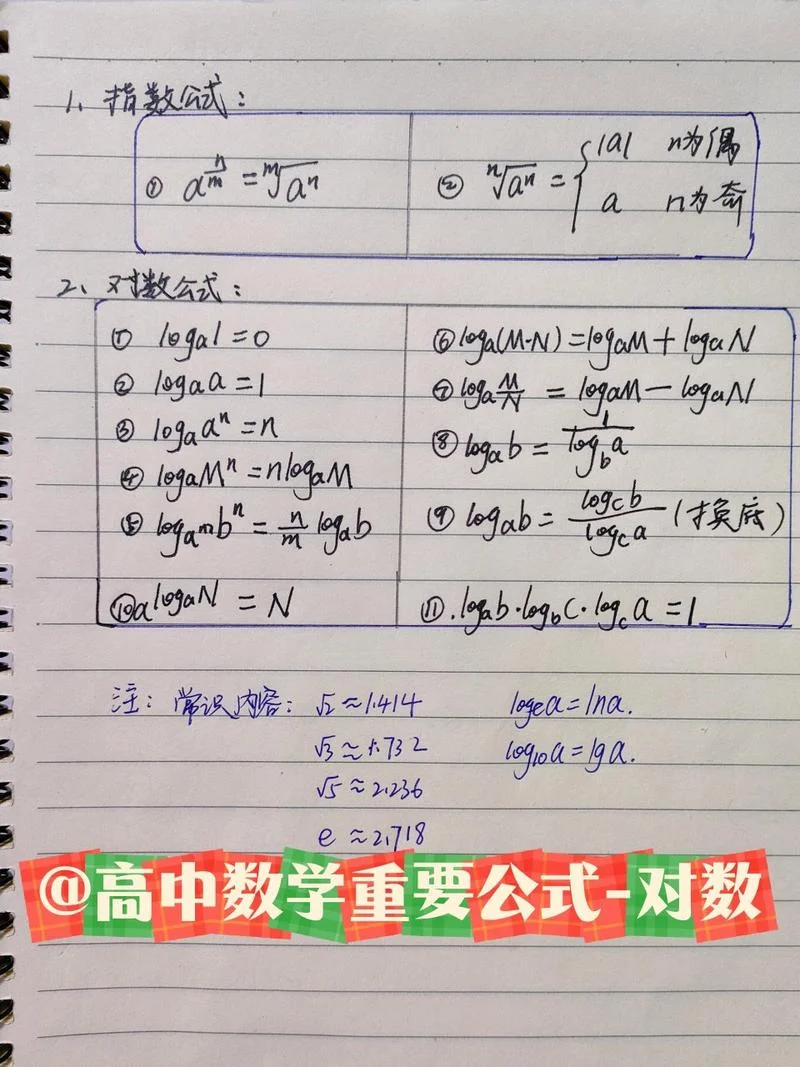 1、指数公式：
① a^{n/m} = \sqrt[m]{a^n}
② \sqrt[n]{a^n} = { |a| n为偶
a n为奇
2、对数公式：
① log_a 1 = 0
② log_a a = 1
③ log_a a^n = n
④ log_a M^n = n log_a M
⑤ log_{a^m} b^n = \frac{n}{m} log_a b
⑩ a^{log_a N} = N
⑥ log_a (M·N) = log_a M + log_a N
⑦ log_a \frac{M}{N} = log_a M − log_a N
⑧ log_a b = \frac{1}{log_b a}
⑨ log_a b = \frac{log_c b}{log_c a} (换底)
⑪ . log_a b · log_b c · log_c a = 1
注：常识内容：√2 ≈ 1.414
√3 ≈ 1.732
√5 ≈ 2.236
e ≈ 2.718
log_e a = ln a.
log_{10} a = lg a.
@高中数学重要公式-对数